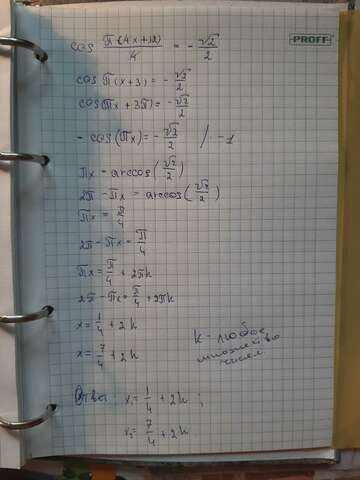 PROFF
cos π(4x+12)/4 = - √2/2
cos π(x+3) = - √2/2
cos(πx + 3π) = - √2/2
- cos(πx) = - √2/2 / · -1
πx = arccos(√2/2)
2π - πx = arccos(√2/2)
πx = π/4
2π - πx = π/4
πx = π/4 + 2πk
2π - πx = π/4 + 2πk
x = 1/4 + 2k
x = 7/4 + 2k
k - любое
множество
чисел
Ответ: x₁ = 1/4 + 2k ;
x₂ = 7/4 + 2k